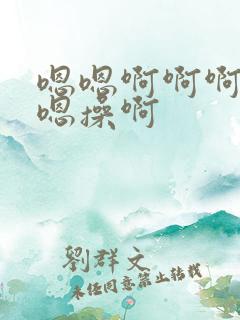 嗯嗯啊啊啊
嗯操啊
劉群文
未经同意禁止转载